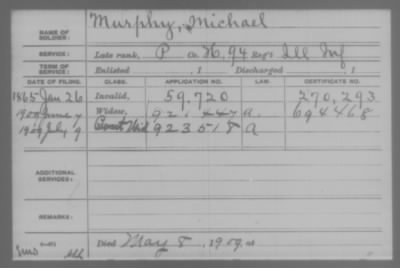 NAME OF SOLDIER: Murphy, Michael
SERVICE: Late rank, P Co. H, 94 Reg't Ill Inf
TERM OF SERVICE: Enlisted , 1 Discharged , 1
DATE OF FILING. CLASS. APPLICATION NO. LAW. CERTIFICATE NO.
1865 Jan 26 Invalid, 59,720 270,293
Widow, 921,447 a. 694468
1909 July 9 Cont Wid 923518 a
ADDITIONAL SERVICES:
REMARKS:
Died May 8, 1909, at